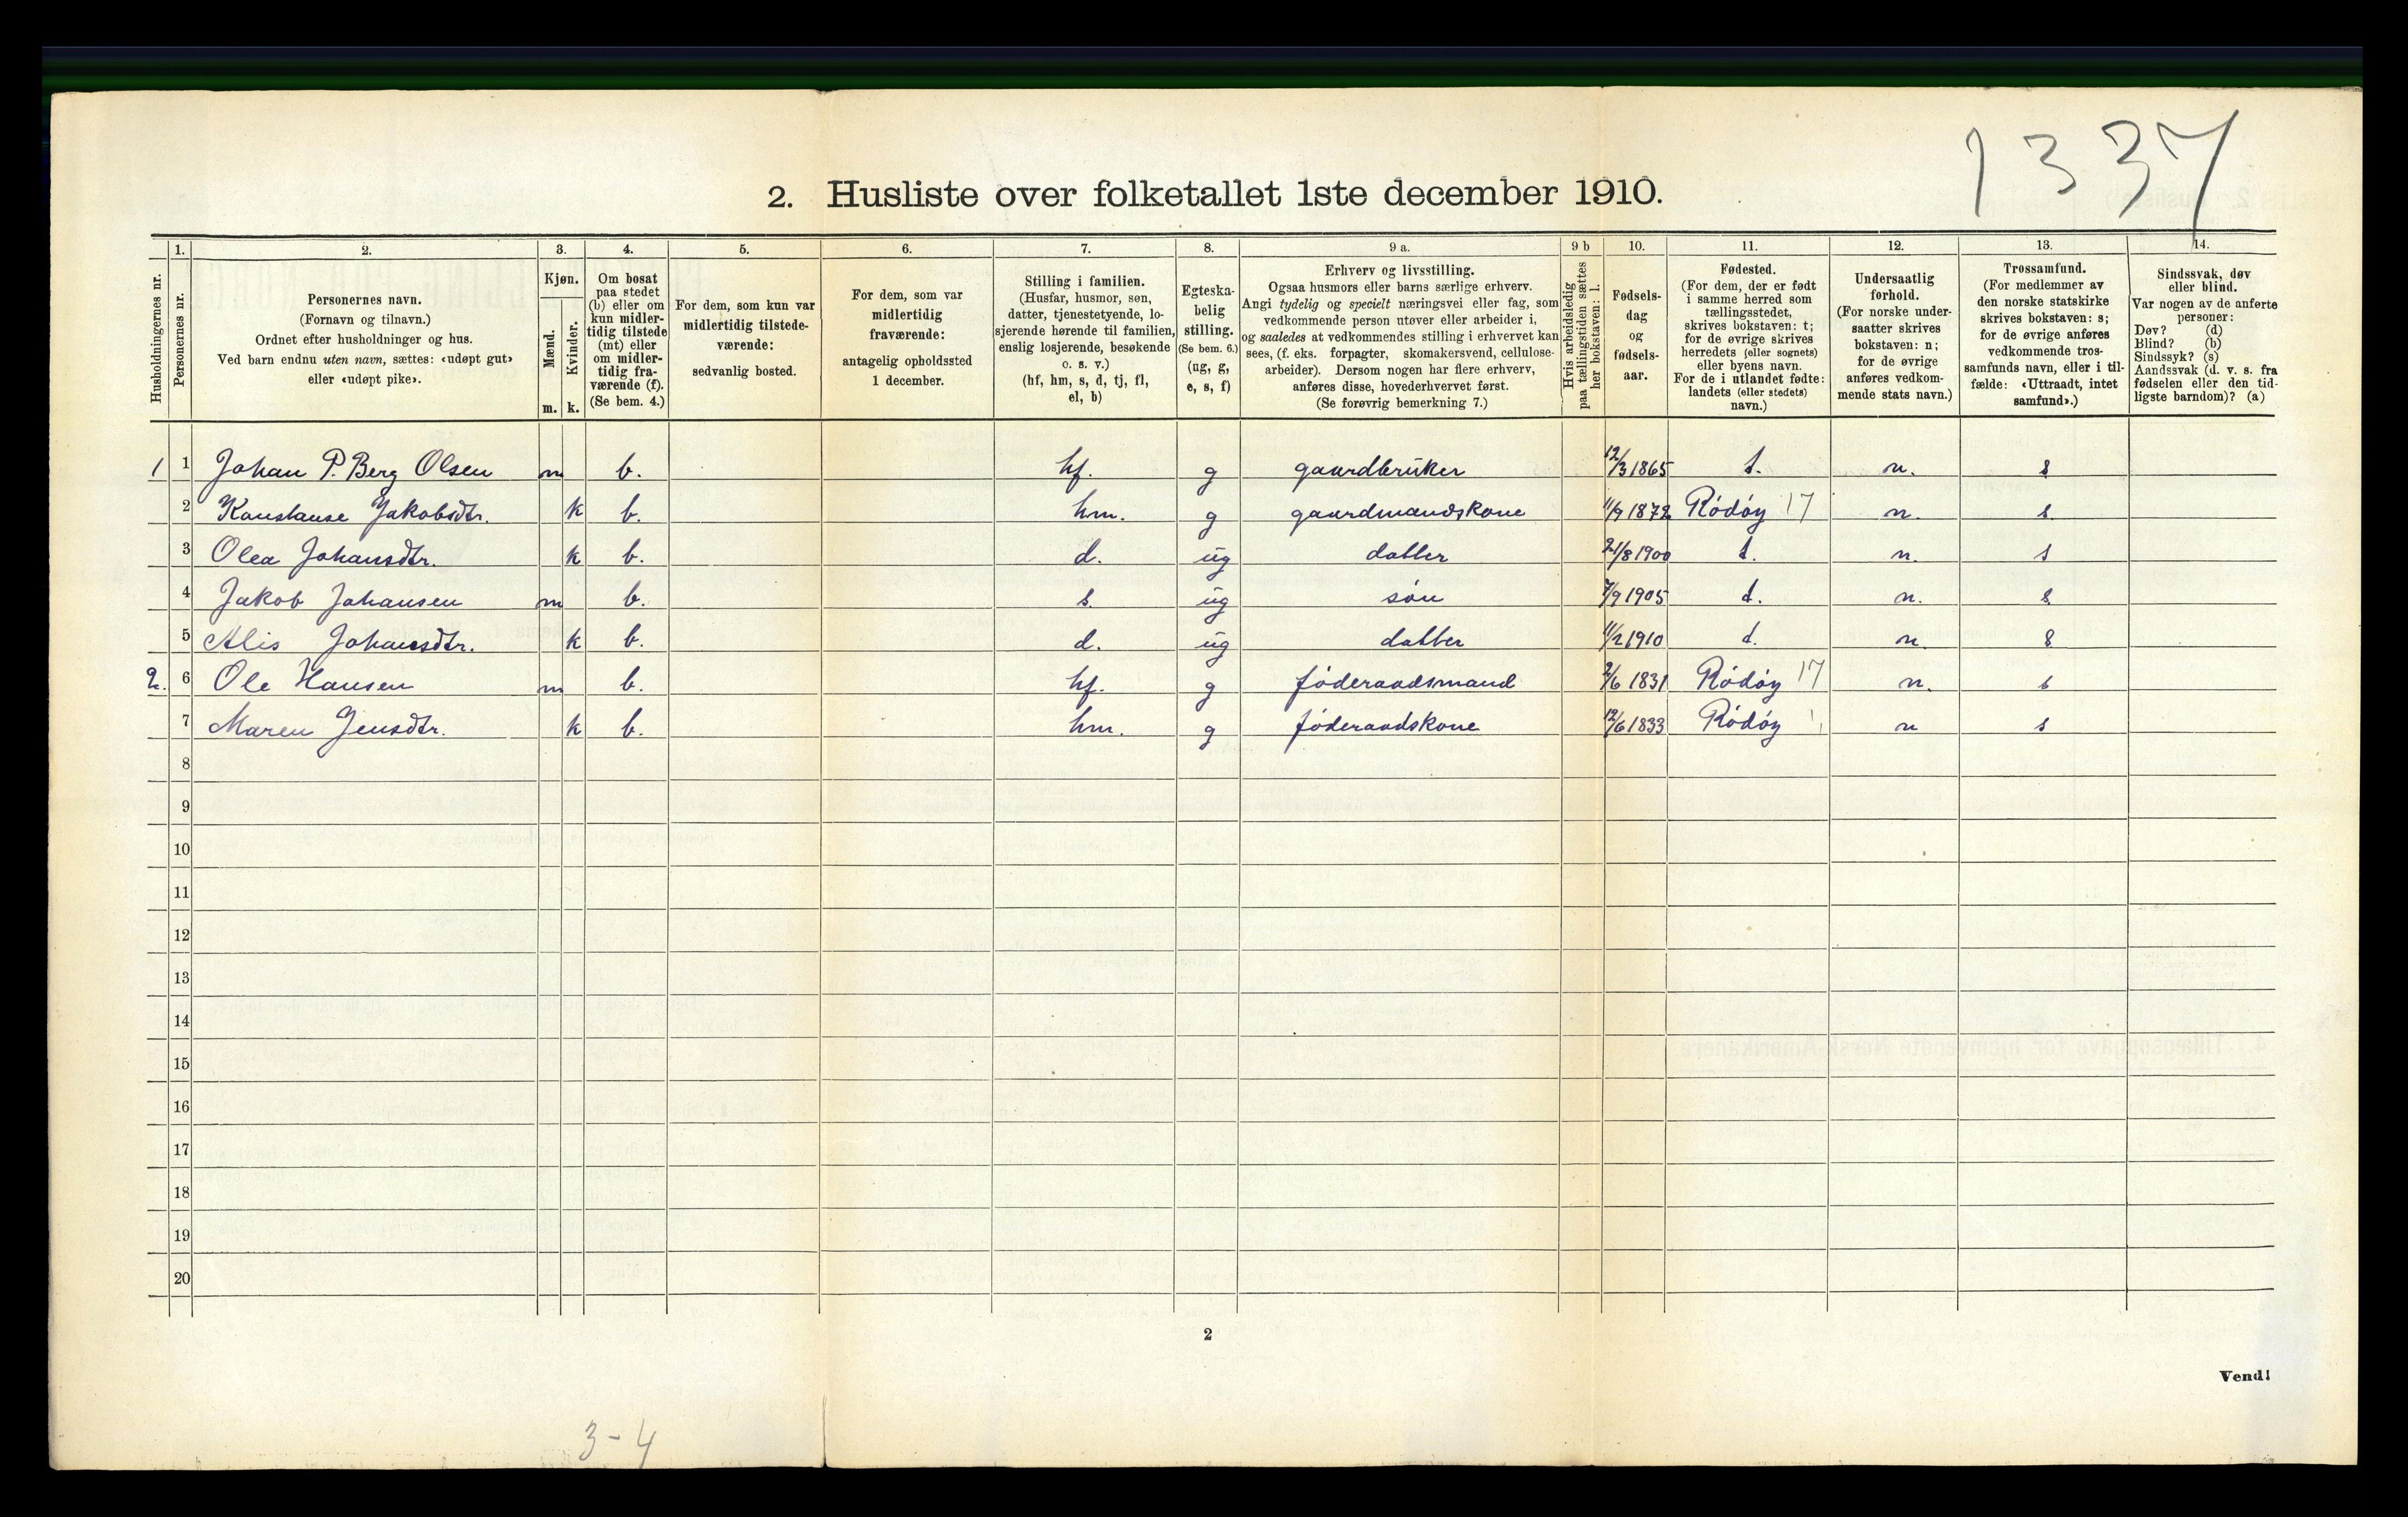 1337
2. Husliste over folketallet 1ste december 1910.
Husholdningernes nr.
1. Personernes nr.
2. Personernes navn. (Fornavn og tilnavn.) Ordnet efter husholdninger og hus. Ved barn endnu uten navn, sættes: «udøpt gut» eller «udøpt pike».
3. Kjøn. Mænd. m. Kvinder. k.
4. Om bosat paa stedet (b) eller om kun midlertidig tilstede (mt) eller om midlertidig fraværende (f). (Se bem. 4.)
5. For dem, som kun var midlertidig tilstedeværende: sedvanlig bosted.
6. For dem, som var midlertidig fraværende: antagelig opholdssted 1 december.
7. Stilling i familien. (Husfar, husmor, søn, datter, tjenestetyende, losjerende hørende til familien, enslig losjerende, besøkende o. s. v.) (hf, hm, s, d, tj, fl, el, b)
8. Egteskabelig stilling. (Se bem. 6.) (ug, g, e, s, f)
9 a. Erhverv og livsstilling. Ogsaa husmors eller barns særlige erhverv. Angi tydelig og specielt næringsvei eller fag, som vedkommende person utøver eller arbeider i, og saaledes at vedkommendes stilling i erhvervet kan sees, (f. eks. forpagter, skomakersvend, cellulosearbeider). Dersom nogen har flere erhverv, anføres disse, hovederhvervet først. (Se forøvrig bemerkning 7.)
9 b Hvis arbeidsledig paa tællingstiden sættes her bokstaven: l.
10. Fødselsdag og fødselsaar.
11. Fødested. (For dem, der er født i samme herred som tællingsstedet, skrives bokstaven: t; for de øvrige skrives herredets (eller sognets) eller byens navn. For de i utlandet fødte: landets (eller stedets) navn.)
12. Undersaatlig forhold. (For norske undersaatter skrives bokstaven: n; for de øvrige anføres vedkommende stats navn.)
13. Trossamfund. (For medlemmer av den norske statskirke skrives bokstaven: s; for de øvrige anføres vedkommende trossamfunds navn, eller i tilfælde: «Uttraadt, intet samfund».)
14. Sindssvak, døv eller blind. Var nogen av de anførte personer: Døv? (d) Blind? (b) Sindssyk? (s) Aandssvak (d. v. s. fra fødselen eller den tidligste barndom)? (a)
1 1 Johan P. Berg Olsen m b. hf. g gaardbruker 12/3 1865 t. n. s
2 Konstanse Jakobsdtr. k b. hm. g gaardmandskone 11/9 1872 Rödöy 17 n. s
3 Olea Johansdtr. k b. d. ug datter 21/8 1900 t. n. s
4 Jakob Johansen m b. s. ug sön 7/9 1905 t. n. s
5 Alis Johansdtr. k b. d. ug datter 11/2 1910 t. n. s
2. 6 Ole Hansen m b. hf. g föderaadsmand 2/6 1831 Rödöy 17 n. s
7 Maren Jensdtr. k b. hm. g föderaadskone 12/6 1833 Rödöy n s
8
9
10
11
12
13
14
15
16
17
18
19
20
2
Vend!
3-4